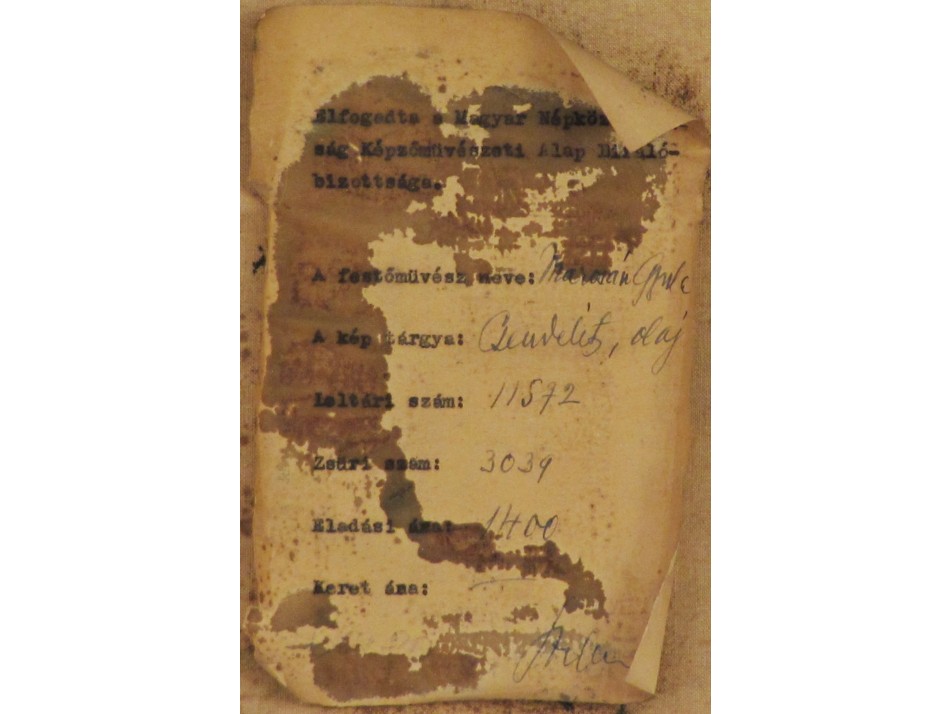 Elfogadta a Magyar Népköz
ság Képzőművészeti Alap Biráló-
bizottsága.
A festőművész neve: Marosán Gyula
A kép tárgya: Csendélet, olaj
Leltári szám: 11572
Zsűri szám: 3039
Eladási ára: 1400
Keret ára: —